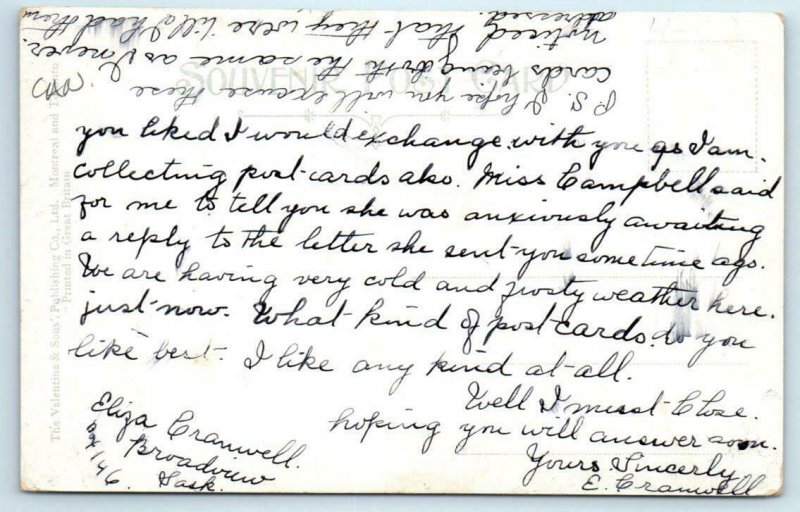 SOUVENIR POST CARD
you liked I would exchange with you as I am
collecting post-cards also. Miss Campbell said
for me to tell you she was anxiously awaiting
a reply to the letter she sent you sometime ago.
We are having very cold and frosty weather here.
just now. What kind of post cards do you
like best. I like any kind at all.
Well I must Close.
hoping you will answer soon.
Yours Sincerly
E. Cranwell
Eliza Cranwell.
Broadview
Sask.
P.S. I hope you will excuse these
cards being both the same as I never
noticed that they were till I had them
adressed.
The Valentine & Sons' Publishing Co., Ltd. Montreal and Toronto
Printed in Great Britain